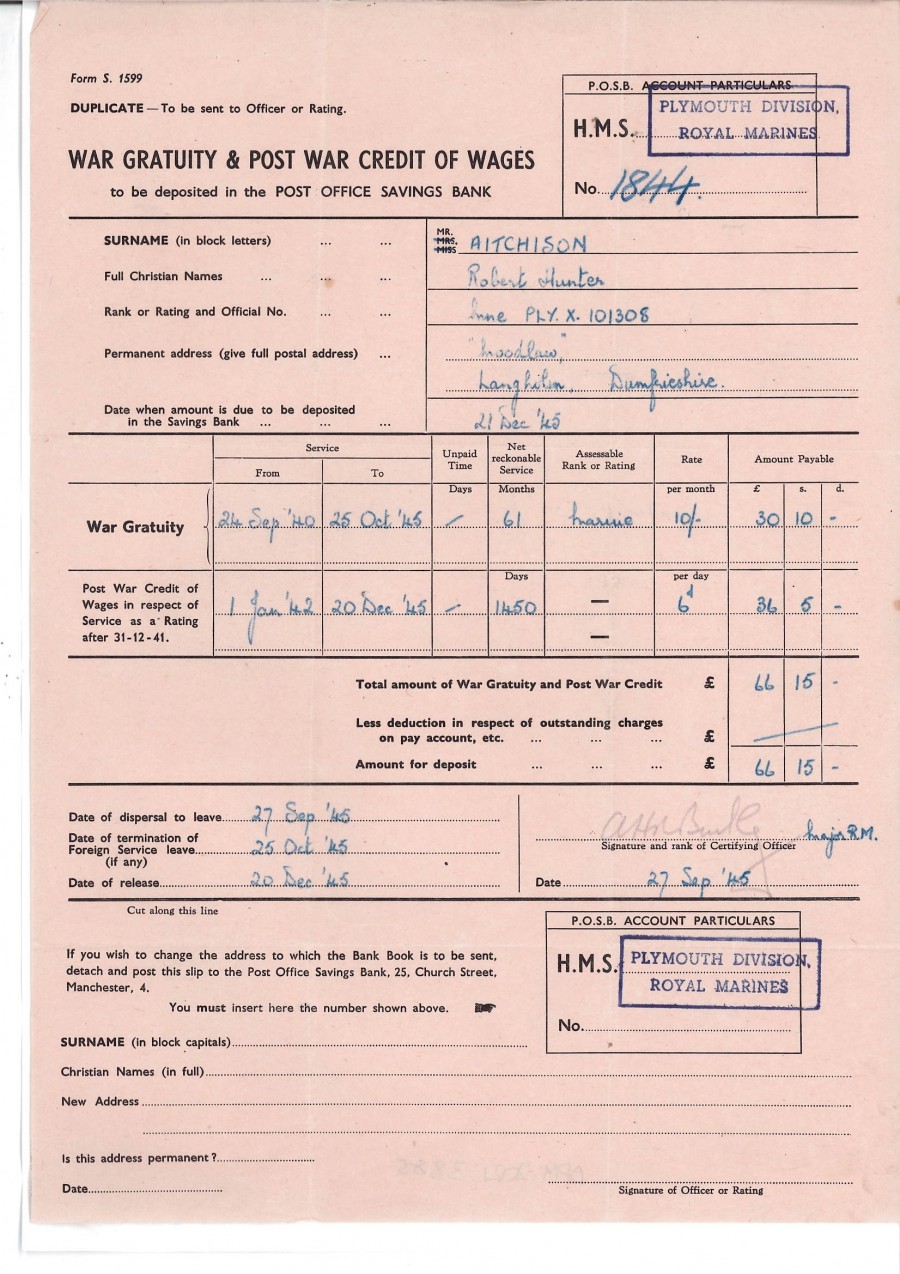 Form S. 1599
DUPLICATE — To be sent to Officer or Rating.
WAR GRATUITY & POST WAR CREDIT OF WAGES
to be deposited in the POST OFFICE SAVINGS BANK
P.O.S.B. ACCOUNT PARTICULARS
H.M.S. PLYMOUTH DIVISION,
ROYAL MARINES
No. 1844.
SURNAME (in block letters) ... ... MR. MRS. MISS AITCHISON
Full Christian Names ... ... ... Robert Hunter
Rank or Rating and Official No. ... ... Mne PLY. X. 101308
Permanent address (give full postal address) ...
Langholm, Dumfriesshire.
Date when amount is due to be deposited
in the Savings Bank ... ... ... 21 Dec '45
Service Unpaid Time Net reckonable Service Assessable Rank or Rating Rate Amount Payable
From To
Days Months per month £ s. d.
War Gratuity 24 Sep '40 25 Oct '45 – 61 Marine 10/- 30 10 -
Days per day
Post War Credit of
Wages in respect of 1 Jan '42 20 Dec '45 – 1450 — 6d 36 5 -
Service as a Rating
after 31-12-41. —
Total amount of War Gratuity and Post War Credit £ 66 15 -
Less deduction in respect of outstanding charges
on pay account, etc. ... ... ... £
Amount for deposit ... ... ... £ 66 15 -
Date of dispersal to leave 27 Sep '45
Date of termination of
Foreign Service leave 25 Oct '45
(if any)
Date of release 20 Dec '45
Major R.M.
Signature and rank of Certifying Officer
Date 27 Sep '45
Cut along this line
If you wish to change the address to which the Bank Book is to be sent,
detach and post this slip to the Post Office Savings Bank, 25, Church Street,
Manchester, 4.
You must insert here the number shown above.
P.O.S.B. ACCOUNT PARTICULARS
H.M.S. PLYMOUTH DIVISION,
ROYAL MARINES
No.
SURNAME (in block capitals)
Christian Names (in full)
New Address
Is this address permanent?
Date
Signature of Officer or Rating